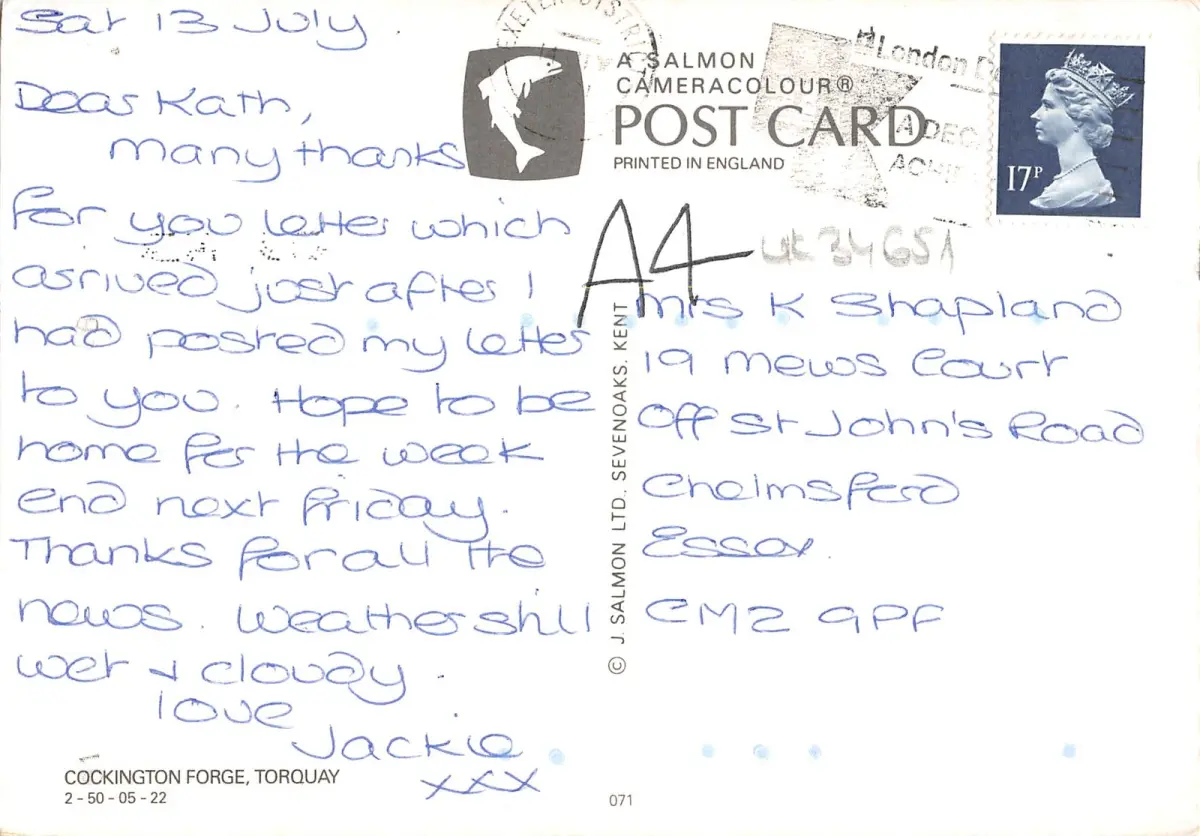 Sat 13 July.
Dear Kath,
Many thanks
for you letter which
arrived just after I
had posted my letter
to you. Hope to be
home for the week
end next Friday.
Thanks for all the
news. Weather still
wet + cloudy.
love
Jackie
xxx
COCKINGTON FORGE, TORQUAY
2 - 50 - 05 - 22
EXETER DISTRICT
A SALMON
CAMERACOLOUR®
POST CARD
PRINTED IN ENGLAND
London
A DEC
17P
A4
UK 34651
© J. SALMON LTD., SEVENOAKS, KENT
Mrs K Shapland
19 Mews Court
Off St John's Road
Chelmsford
Essex.
CM2 9PF
071